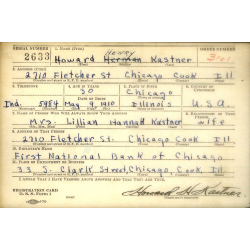 SERIAL NUMBER 1. NAME (Print) ORDER NUMBER
HENRY
2633 Howard Herman Kastner
2. ADDRESS (Print)
2710 Fletcher St. Chicago Cook Ill.
3. TELEPHONE 4. AGE IN YEARS 5. PLACE OF BIRTH 6. COUNTRY OF CITIZENSHIP
30 Chicago
Ind. 5984 May 9, 1910 Illinois U.S.A.
7. NAME OF PERSON WHO WILL ALWAYS KNOW YOUR ADDRESS
Mrs. Lillian Hannah Kastner wife
8. ADDRESS OF THAT PERSON
2710 Fletcher St. Chicago Cook Ill.
9. EMPLOYER'S NAME
First National Bank of Chicago
10. PLACE OF EMPLOYMENT OR BUSINESS
33 S. Clark Street, Chicago, Cook, Ill.
I AFFIRM THAT I HAVE VERIFIED ABOVE ANSWERS AND THAT THEY ARE TRUE.
REGISTRATION CARD
D.S.S. Form 1
Howard H. Kastner